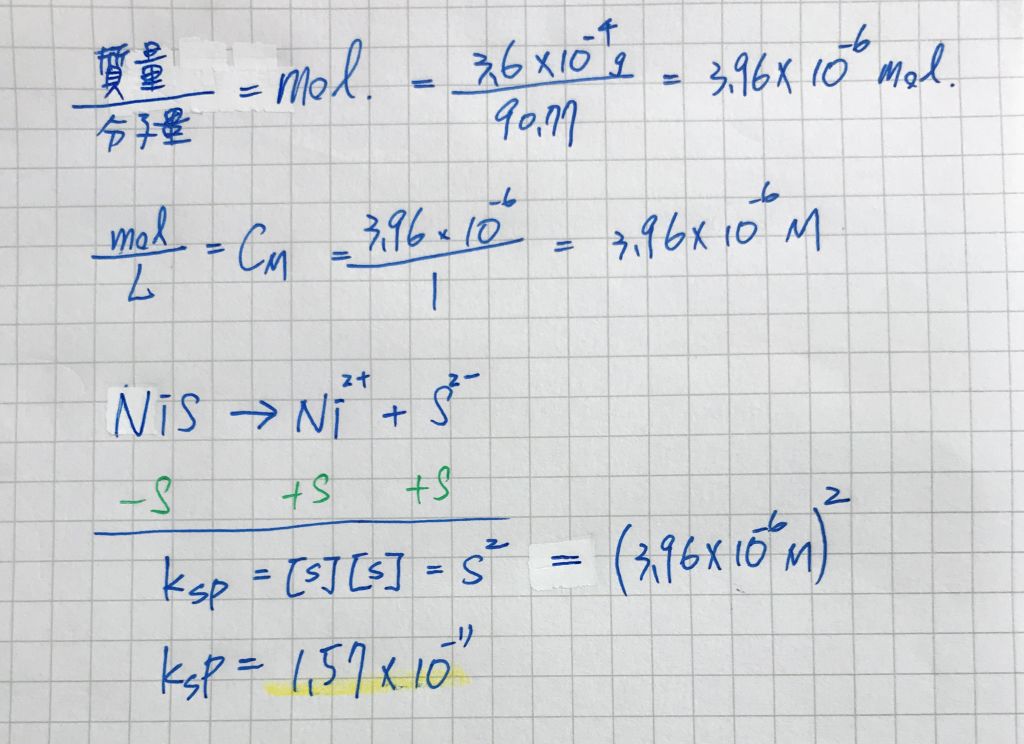 質量/分子量 = mol. = 3.6×10⁻⁴g/90.77 = 3.96×10⁻⁶ mol.
mol/L = C_M = 3.96×10⁻⁶/1 = 3.96×10⁻⁶ M
NiS → Ni²⁺ + S²⁻
-S +S +S
ksp = [s][s] = s² = (3.96×10⁻⁶M)²
ksp = 1.57×10⁻¹¹